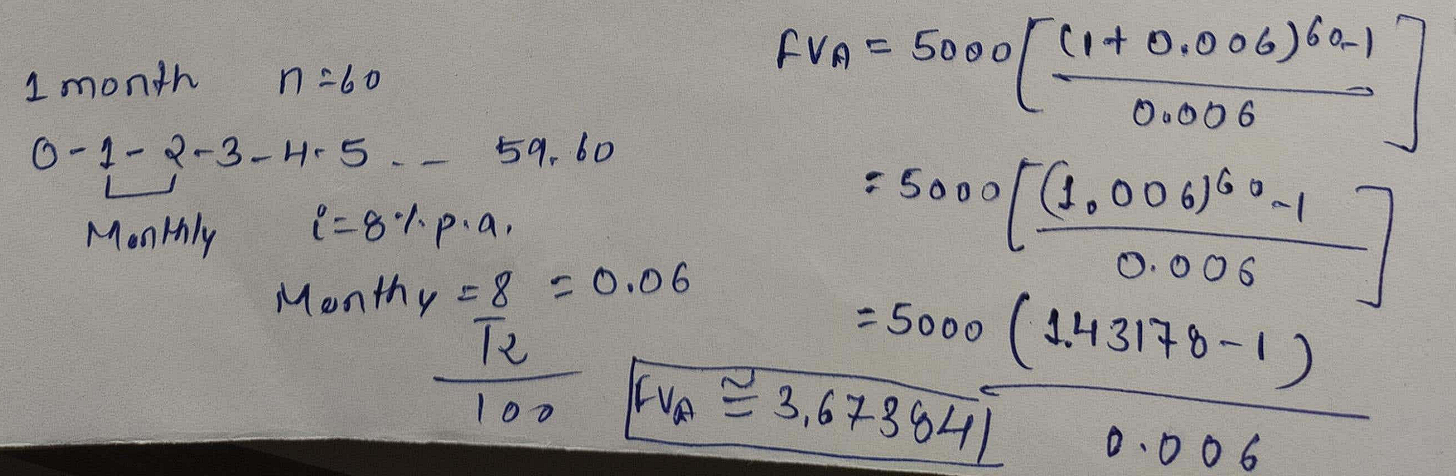 1 month n=60
0-1-2-3-4-5 - - 59.60
Monthly i=8%p.a.
Monthy = 8/12/100 = 0.06
FVA = 5000[(1+0.006)60-1/0.006]
= 5000[(1.006)60-1/0.006]
= 5000(1.43178-1)/0.006
FVA ≅ 3,673841